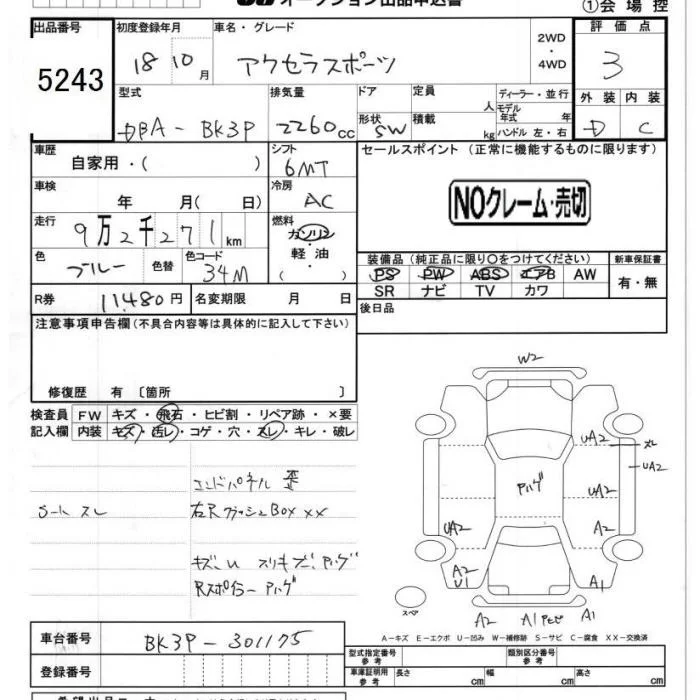 オークション出品申込書
①会場控
出品番号 初度登録年月 車名・グレード 評価点
5243 18 10月 アクセラスポーツ 2WD・4WD 3
型式 排気量 ドア 定員 人 ディーラー・並行 外装 内装
DBA-BK3P 2260cc 形状 SW 積載 kg モデル年式 年 ハンドル 左・右 D C
車歴 シフト セールスポイント (正常に機能するものに限ります)
自家用・( ) 6MT
車検 冷房 NOクレーム・売切
年 月( 日) AC
走行 燃料
9万2千271km ガソリン・軽油・( )
色 色替 色コード 装備品 (純正品に限り○をつけてください) 新車保証書
ブルー 34M PS PW ABS エアB AW 有・無
SR ナビ TV カワ
R券 11,480円 名変期限 月 日 後日品
注意事項申告欄 (不具合内容等は具体的に記入して下さい)
修復歴 有 〔箇所 〕
検査員 FW キズ・飛石・ヒビ割・リペア跡・×要
記入欄 内装 キズ・汚レ・コゲ・穴・スレ・キレ・破レ
エンドパネル 歪
シート スレ
キズ、U スリキズ、Pハゲ
Rスポイラー Pハゲ
W2
UA2 スレ
UA2
Pハゲ UA2
UA2 A2
A2 U1 A1
スペア
A2 A1 A1
A-キズ E-エクボ U-凹み W-補修跡 S-サビ C-腐食 XX-交換済
車台番号 BK3P-301175
型式指定番号 参考 類別区分番号 参考
登録番号 車庫証明用 参考 長さ cm 幅 cm 高さ cm